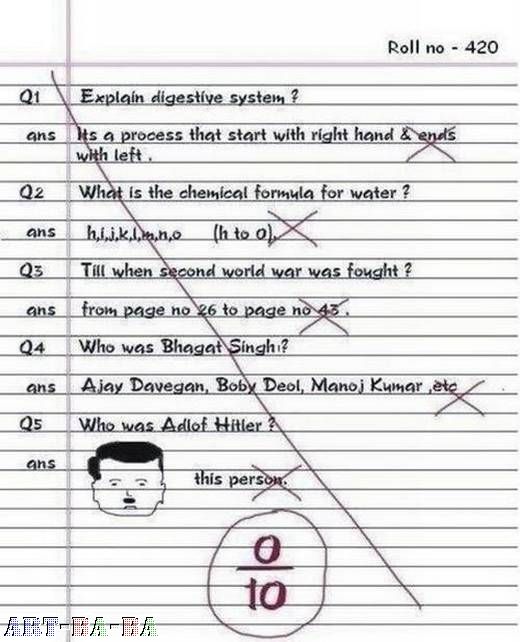 Roll no - 420
Q1 Explain digestive system ?
ans Its a process that start with right hand & ends
with left .
Q2 What is the chemical formula for water ?
ans h,i,j,k,l,m,n,o (h to o).
Q3 Till when second world war was fought ?
ans from page no 26 to page no 43 .
Q4 Who was Bhagat Singh ?
ans Ajay Davegan, Boby Deol, Manoj Kumar ,etc
Q5 Who was Adlof Hitler ?
ans this person.
0
10
ART-BA-BA